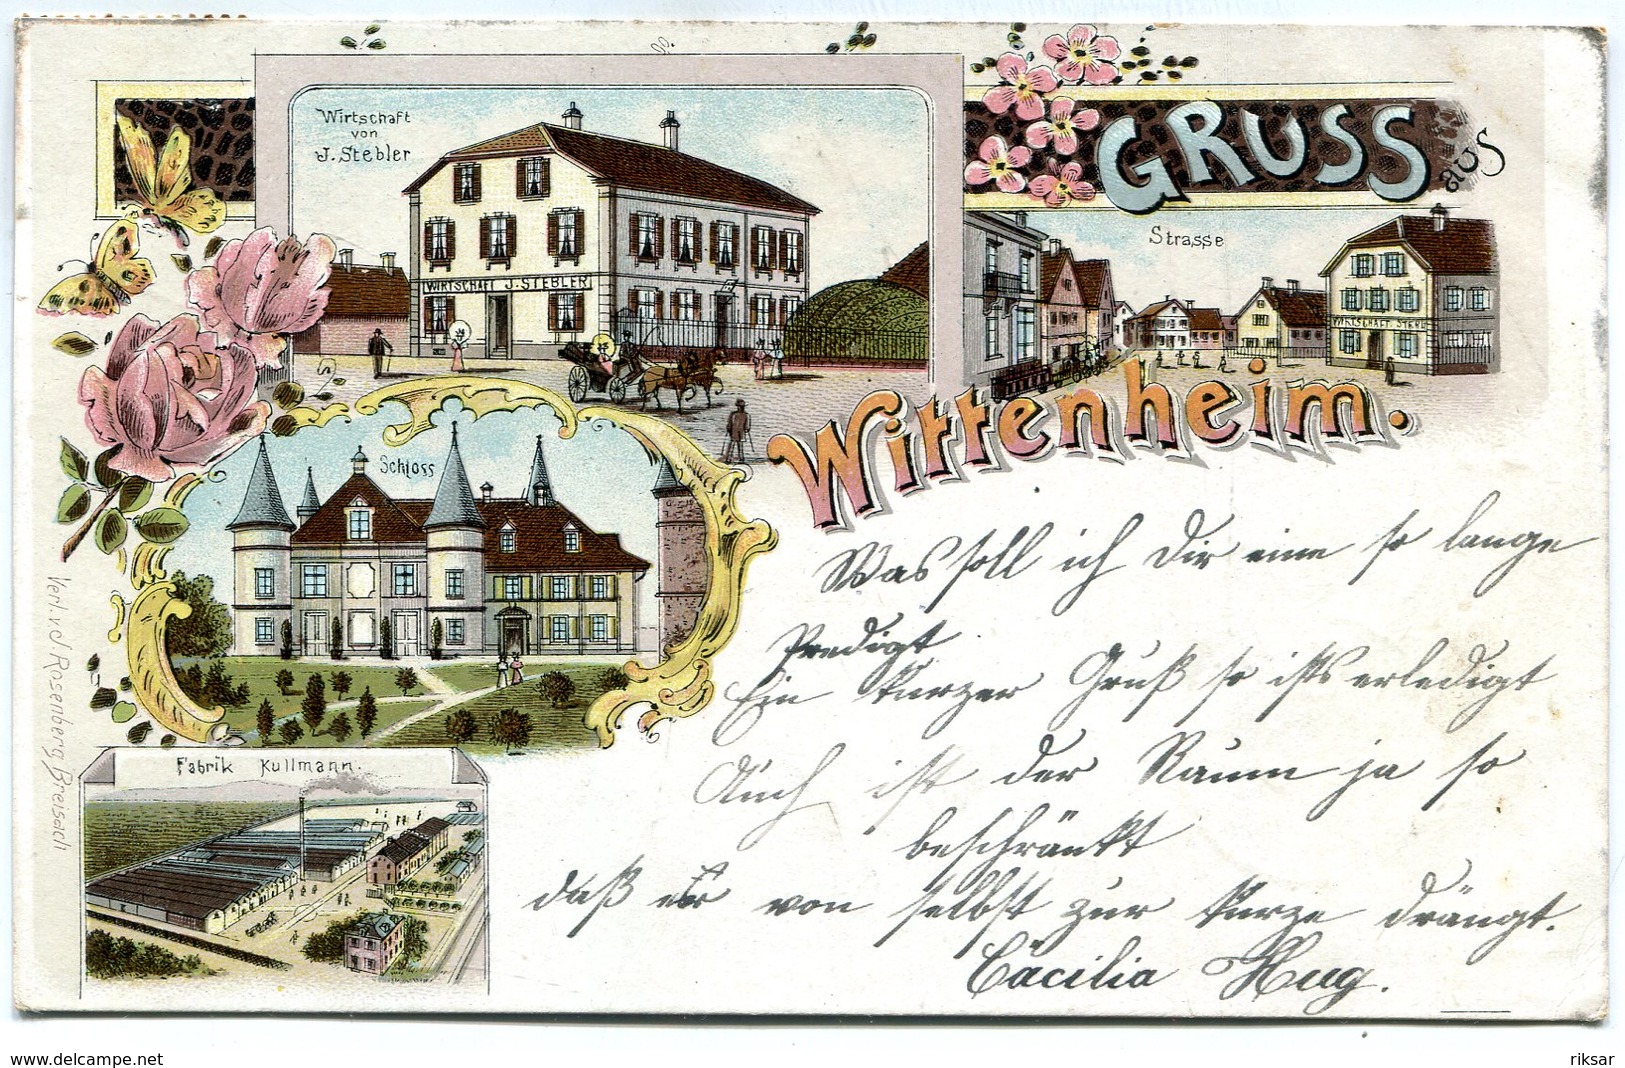 Wirtschaft
von
J. Stebler
WIRTSCHAFT J. STEBLER
GRUSS aus
Strasse
WIRTSCHAFT. STEBL
Wittenheim.
Schloss
Fabrik Kullmann.
Verl. v. J. Rosenberg, Breisach
Was soll ich Dir eine so lange
Predigt
Ein kurzer Gruß so ists erledigt
Auch ist der Raum ja so
beschränkt
daß er von selbst zur Kürze drängt.
Cäcilia Hug.
delcampe.net
riksar